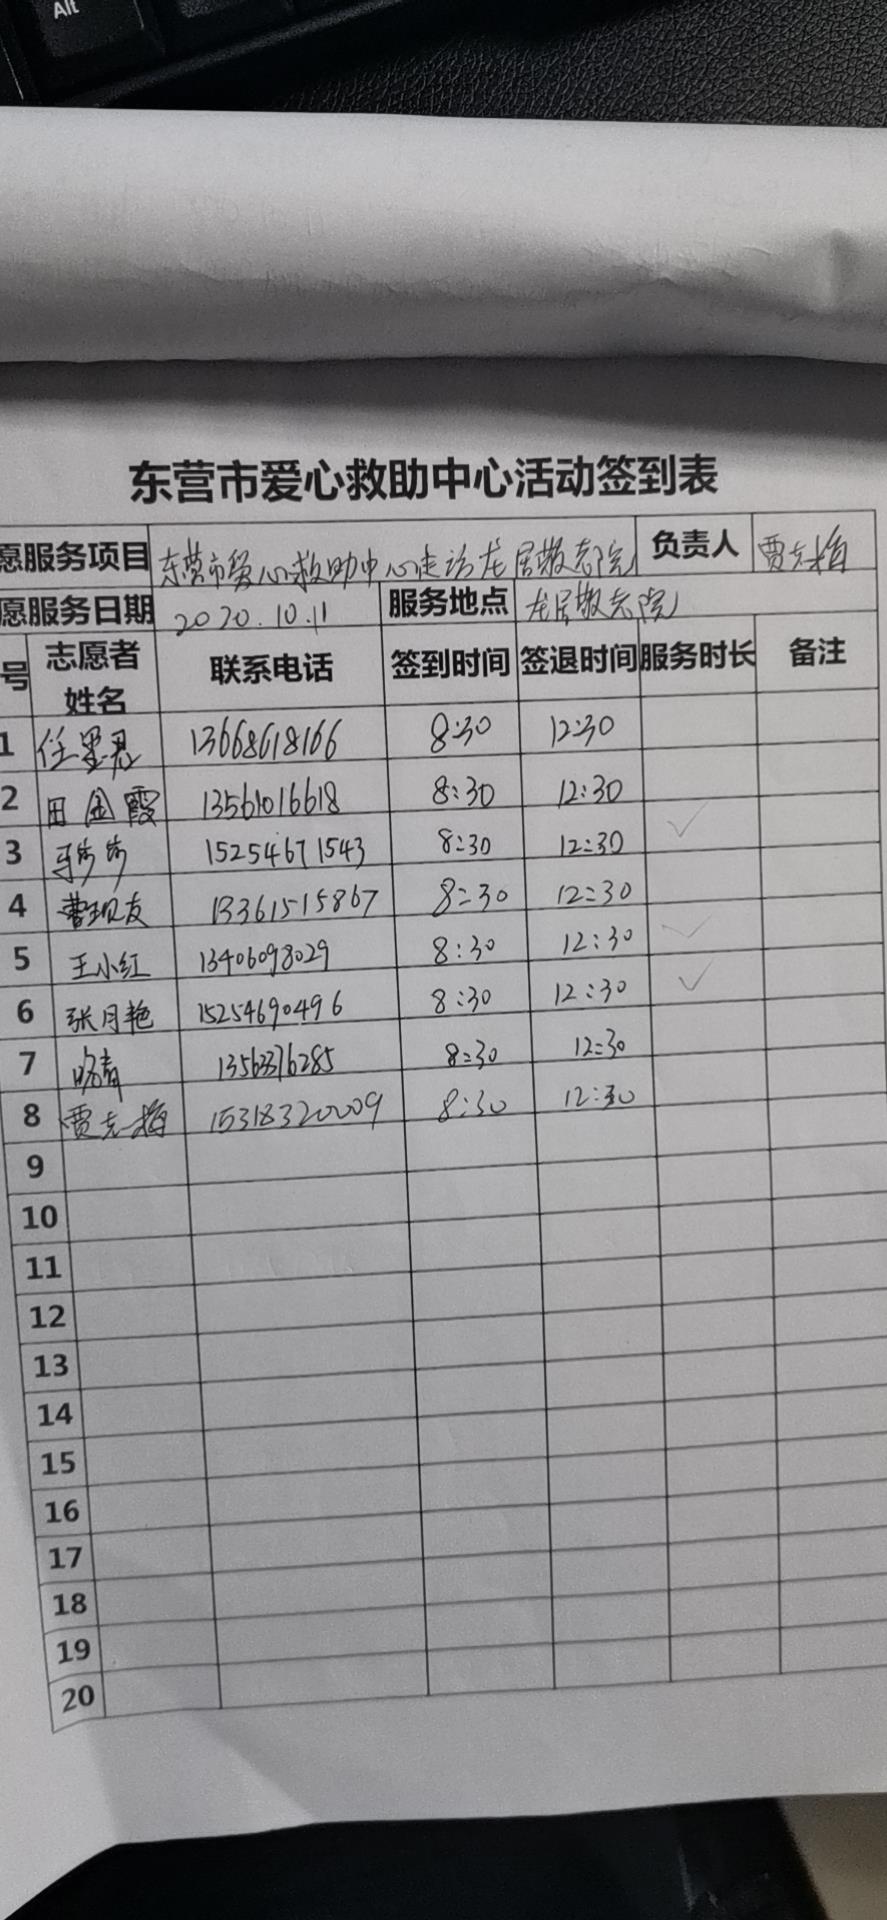 Alt
东营市爱心救助中心活动签到表
愿服务项目 东营市爱心救助中心走访龙居敬老院 负责人 贾克梅
愿服务日期 2020.10.11 服务地点 龙居敬老院
号 志愿者姓名 联系电话 签到时间 签退时间 服务时长 备注
1 任墨君 13668618166 8:30 12:30
2 田金霞 13561016618 8:30 12:30
3 15254671543 8:30 12:30 ✓
4 曹现友 13361515867 8:30 12:30
5 王小红 13406098029 8:30 12:30 ✓
6 张月艳 15254690496 8:30 12:30 ✓
7 8:30 12:30
8 贾克梅 15318320009 8:30 12:30
9
10
11
12
13
14
15
16
17
18
19
20